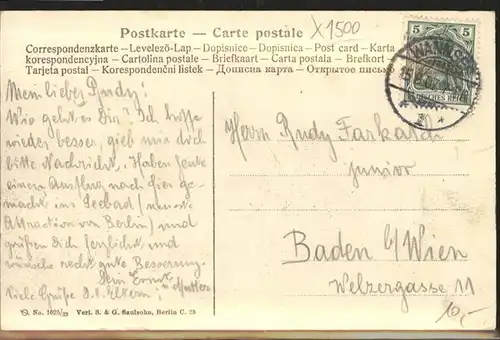 Postkarte — Carte postale
X1500
Correspondenzkarte – Levelező-Lap – Dopisnice – Dopisnica – Post card – Karta
korespondencyjna – Cartolina postale – Briefkaart – Carta postala – Brefkort –
Tarjeta postal – Korespondenční listek – Дописна карта – Открытое письмо
5 5
WANNSEE
DEUTSCHES REICH
Mein lieber Rudy!
Wie geht es Dir? Ich hoffe
wieder besser, gieb mir doch
bitte Nachricht. Haben heute
einen Ausflug nach hier ge-
macht ins Seebad (neueste
Attraction von Berlin) und
grüßen Dich herzlichst und
wünsche recht gute Besserung.
Dein Ernst
Viele Grüße d. l. Eltern
Herrn Rudy Farkasch
junior
Baden b/Wien
Welzergasse 11
10,-
No. 1025/22 Verl. S. & G. Saulsohn, Berlin C. 25